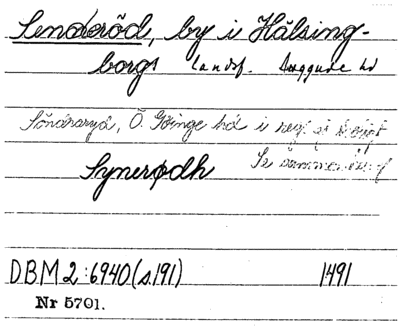 Senderöd, by i Hälsing-
borgs Landsf. Luggude hd
Söndraryd, Ö. Göinge hd i reg. ej
Synerødh Se
DBM 2:6940 (s.191) 1491
Nr 5701.